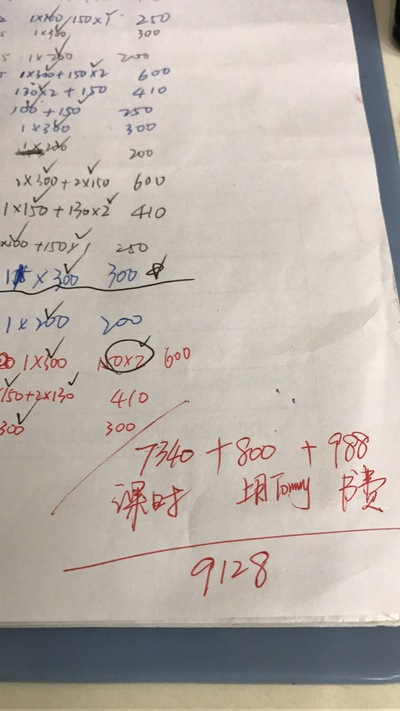 1×100/150×1 250
1×300 300
1×200 200
1×300+150×2 600
130×2+150 410
100+150 250
1×300 300
1×200 200
1×300+2×150 600
1×150+130×2 410
×100+150×1 250
1×300 300
1×200 200
1×300 150×2 600
150+2×130 410
300 300
7340+800+988
课时 上月Tommy 书费
9128